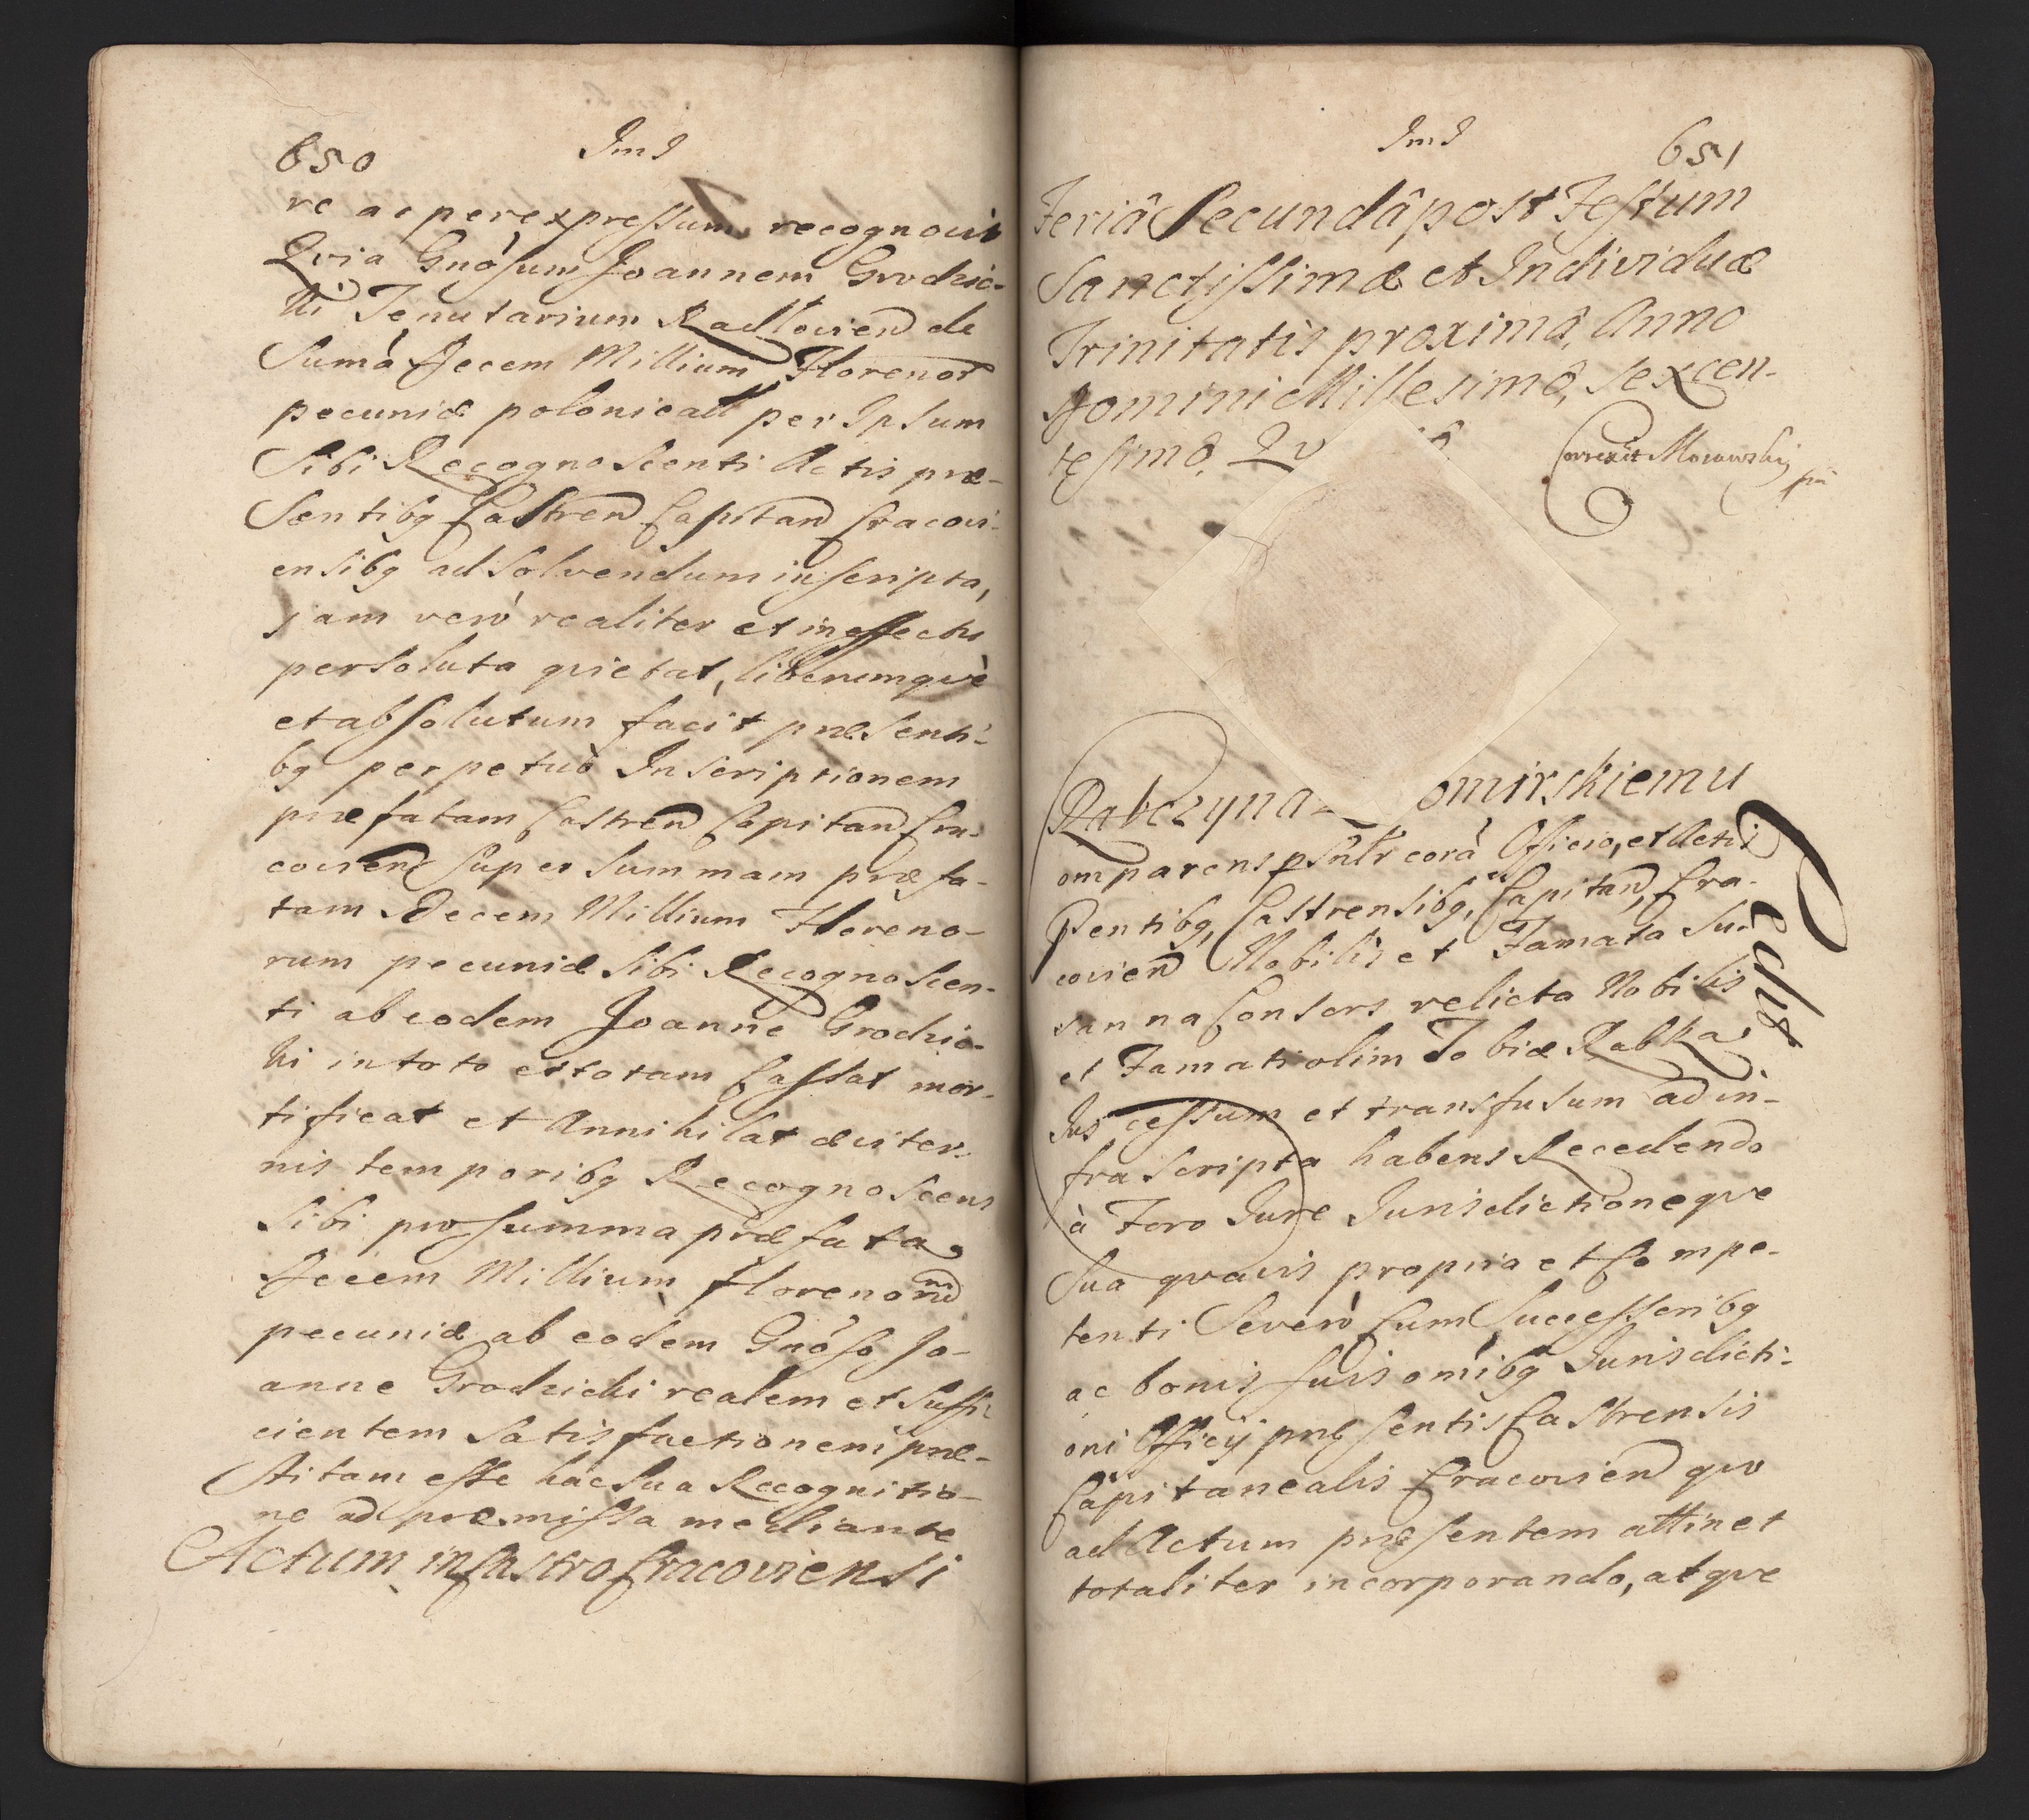 650 Jmd
re ac per expressum recognovit
Qvia Gnosum Joannem Grodzic-
ki Tenutarium Radlovien de
Suma Decem Millium Florenor
pecuniæ polonicall per Ipsum
Sibi Recognoscenti Actis præ-
Sentibg Castren Capitan Cracovi-
ensibg ad Solvendum inscripta,
jam verò realiter et in effectu
persoluta qvietat, liberumqvè
et absolutum facit præsenti-
bg perpetuò Inscriptionem
præfatam Castren Capitan Cra-
covien Super Summam præfa-
tam Decem Millium Floreno-
rum pecuniæ Sibi Recognoscen-
ti ab eodem Joanne Grodzic-
ki in toto et totam Cassat mor-
tificat et Annihilat æviter-
nis temporibg Recognoscens
Sibi pro summa præfata
Decem Millium florenorū
pecuniæ ab eodem Gnoso Jo-
anne Grodzicki realem et Suffi-
cientem Satisfactionem præ-
stitam esse hac Sua Recognitio-
ne ad præmissa mediante
Actum in Castro Cracoviensi
Jmd 651
Feriâ Secundâ post Festum
Sanctissimæ et Individuæ
Trinitatis proximâ, Anno
Domini Millesimô, Sexcen-
tesimô, Qv
Correxit Morawskij
Rabczyna omirskiemu
omparens psntr corā Officio, et Actis
Psentibg, Castrensibg, Capitan, Cra-
covien Nobilis et Famata Su-
sanna Consors relicta Nobilis
et Famati olim Tobiæ Rabka
Jus cessum et transfusum ad in-
frascripta habens Recedendo
à Foro Jure Jurisdictioneqve
Sua qvavis propria et Compe-
tenti Severò Cum Successoribg
ac bonis suis omibg Jurisdicti-
oni Officij præsentis Castrensis
Capitanealis Cracovien qvo
ad Actum præsentem attinet
totaliter incorporando, atqve
Edit